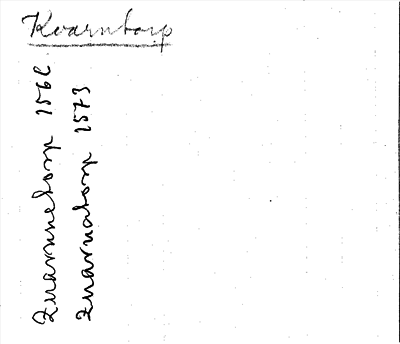 Kvarntorp
Quarnnetorp 1562
Quarnatorp 1573